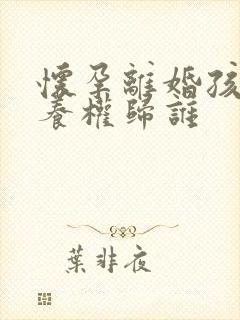 懷孕離婚孩
養權歸誰
葉非夜